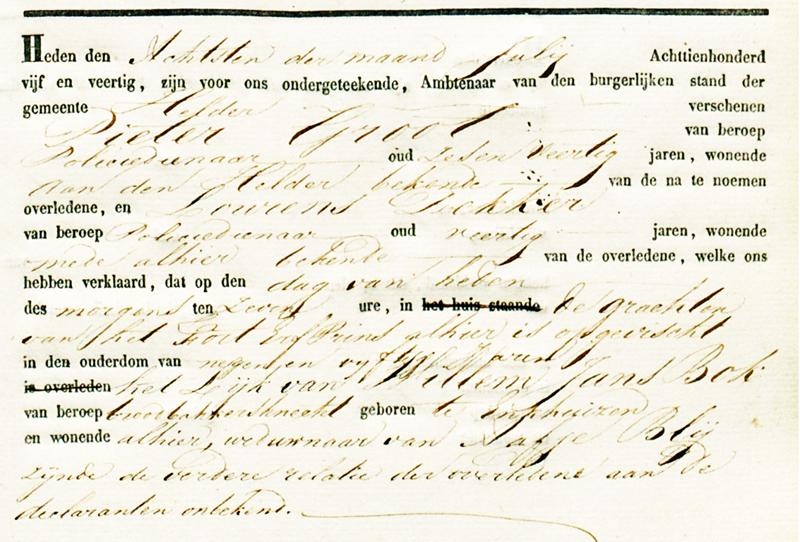 Heden den Achtsten der maand Julij Achttienhonderd
vijf en veertig, zijn voor ons ondergeteekende, Ambtenaar van den burgerlijken stand der
gemeente Helder verschenen
Pieter Groot van beroep
Policiedienaar oud zes en veertig jaren, wonende
aan den Helder bekende van de na te noemen
overledene, en Lourens Dekker
van beroep Policiedienaar oud veertig jaren, wonende
mede alhier bekende van de overledene, welke ons
hebben verklaard, dat op den dag van heden
des morgens ten zeven ure, in het huis staande de grachten
van het Fort Erfprins alhier is opgevischt
in den ouderdom van negen en vyftig Jaren
is overleden het Lijk van Willem Jans Bok
van beroep broodbakkersknecht geboren te Enkhuizen
en wonende alhier, weduwnaar van Blij
zynde de verdere relatie des overledene aan de
declaranten onbekend.